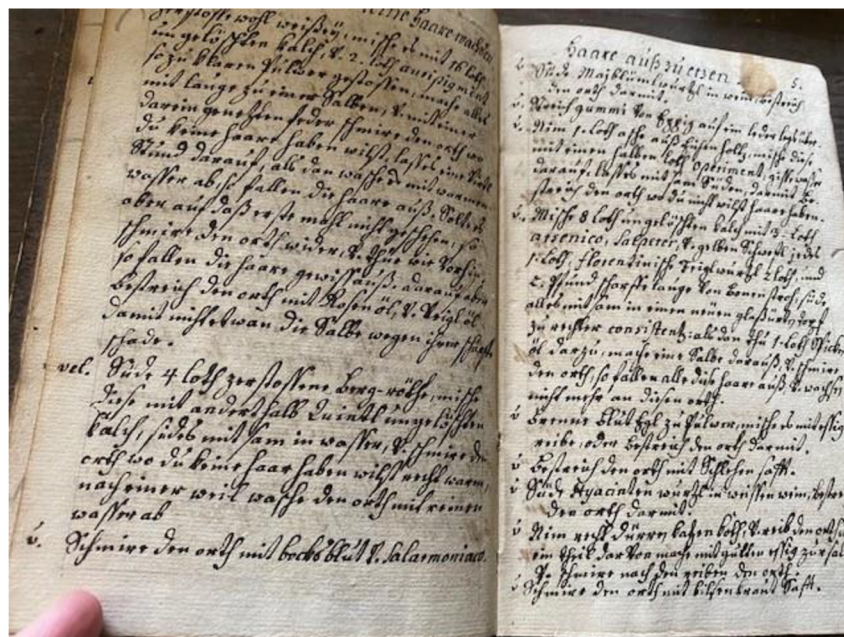 keine haare wachsen
zerstosse wohl weißen, mische es mit 16 loth
ungelöschten kalch, V. 2. loth auripigment
so zu klaren Pulver gestossen, mache alles
mit lauge zu einer Salben, V. mit einer
darein genetzten feder schmire den orth wo
du keine haare haben wilst, lasse es eine
Stund darauf, als dan wasche es mit warmen
wasser ab, so fallen die haare auß. Solte es
aber auf daß erste mahl nicht geschehen, so
schmire den orth wider, V. thue wie vorhin
so fallen die haare gewiß auß. darauf aber
bestreich den orth mit Rosen öl, V. öl
damit nicht etwan die Salbe wegen ihrer schärffe
schade.
vel. Süde 4 loth zerstossene berg-röthe, mische
diese mit anderthalb quintl ungelöschten
kalch, südes mit sam in wasser, V. schmire den
orth wo du keine haar haben wilst recht warm,
nach einer weil wasche den orth mit reinen
wasser ab
v. Schmire den orth mit bocksblut V. Salarmoniaco.
haare auß zu etzen 5.
v. Süde Majblumwurtzl in wein, bestreich
den orth darmit.
v. Streich gummi von auf ein leder legs über.
v. Nim 1. loth asche auß holtz, mische diese
mit einen halben loth Operiment,
darauf, lasse es mit sam Süden, darmit be-
streich den orth wo du nicht wilst haare haben.
v. Mische 8 loth ungelöschten kalch mit 3. loth
arsenico, Salpeter, V. gelben Schwefl jedes
1. loth, florentinische wurtzl 2 loth, und
2. Pfund scharffe lauge von bonenstroh, süde
alles mit sam in einen neuen topf
zu rechter consistentz: als dan thu 1. loth
öl darzu, mache eine Salbe darauß, V. schmire
den orth, so fallen alle die haare auß V. wachsen
nicht mehr an diesen orth.
v. Brenne blut Egl zu Pulver, mische es mit essig
reibe, oder bestreich den orth darmit.
v. bestreich den orth mit Schlehen safft.
v. Süde Hyacinten wurtzl in weissen wein, bestreich
den orth darmit
v. Nim recht dürren katzen koth, V. reib den orth
ein theil darvon mache mit essig zur sal
V. schmire nach den reiben den orth.
v. Schmire den orth mit bilsenkraut Safft.